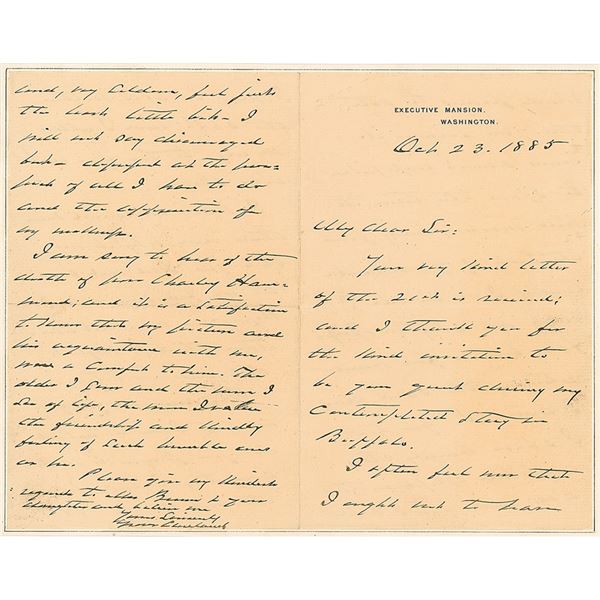 EXECUTIVE MANSION.
WASHINGTON.
Oct 23. 1885
My Dear Sir:
Your very kind letter
of the 21st is received;
and I thank you for
the kind invitation to
be your guest during my
contemplated stay in
Buffalo.
I often feel now that
I ought not to leave
and, very seldom, feel just
the least little bit - I
will not say discouraged
but - at the
of all I have to do
and the opposition of
my
I am sorry to hear of the
death of poor Charley Ham-
mond; and it is a satisfaction
to know that my picture and
his acquaintance with me,
was a comfort to him. The
older I grow and the more I
see of life, the more I value
the friendship and kindly
feeling of such humble ones
as he.
Please give my kindest
regards to Miss & your
daughter and believe me
Yours Sincerely
Grover Cleveland